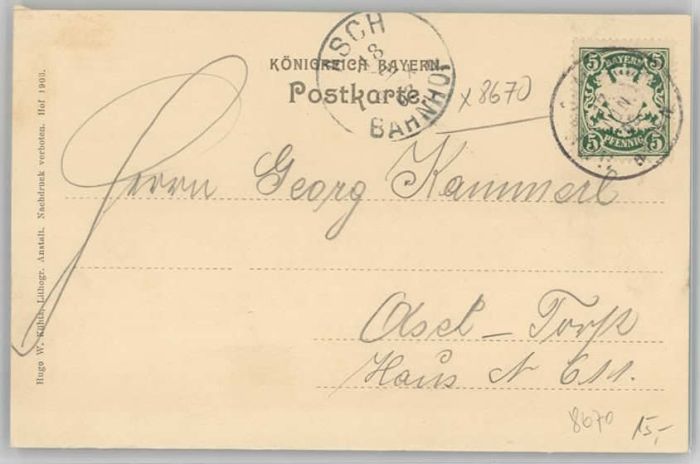 KÖNIGREICH BAYERN.
Postkarte.
ASCH
8
BAHNHOF
x 8670
5 BAYERN 5
5 PFENNIG 5
Herrn Georg Kammerl
Asel – Torfst
Haus N 611.
8670 15,-
Hugo W. Kühn, Lithogr. Anstalt. Nachdruck verboten. Hof 1903.